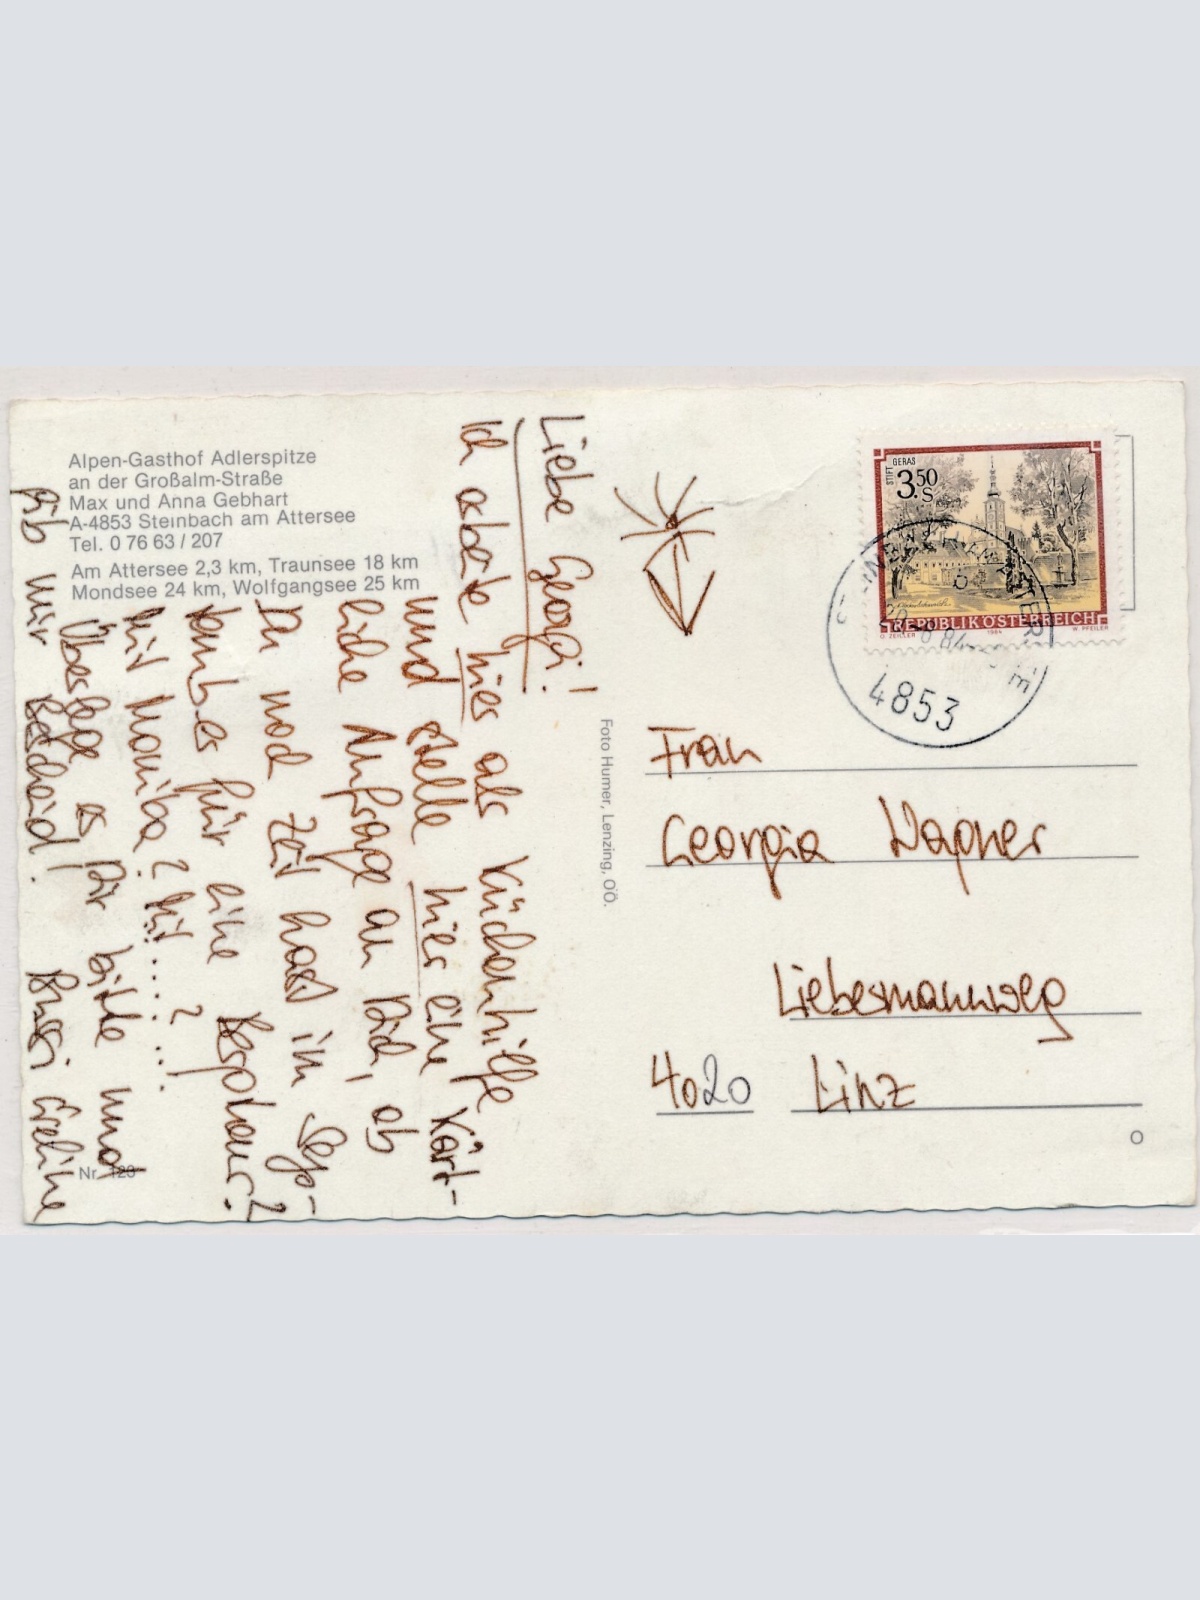 Alpen-Gasthof Adlerspitze
an der Großalm-Straße
Max und Anna Gebhart
A-4853 Steinbach am Attersee
Tel. 0 76 63 / 207
Am Attersee 2,3 km, Traunsee 18 km
Mondsee 24 km, Wolfgangsee 25 km
Liebe Georgi!
Ich arbeite hier als Küchenhilfe
und stelle hier eine Kärt-
liche Anfrage an Dich, ob
Du noch Zeit hast im Sep-
tember für eine Bergtour?
Mit Monika? Mit......?...
Überlege es Dir bitte und
gib mir Bescheid! Bussi Eveline
Nr. 123
Foto Humer, Lenzing, OÖ.
STIFT GERAS
3.50 S
REPUBLIK ÖSTERREICH
O. ZEILLER 1984 W. PFEILER
84
4853
Frau
Georgia Wagner
Liebermannweg
4020 Linz